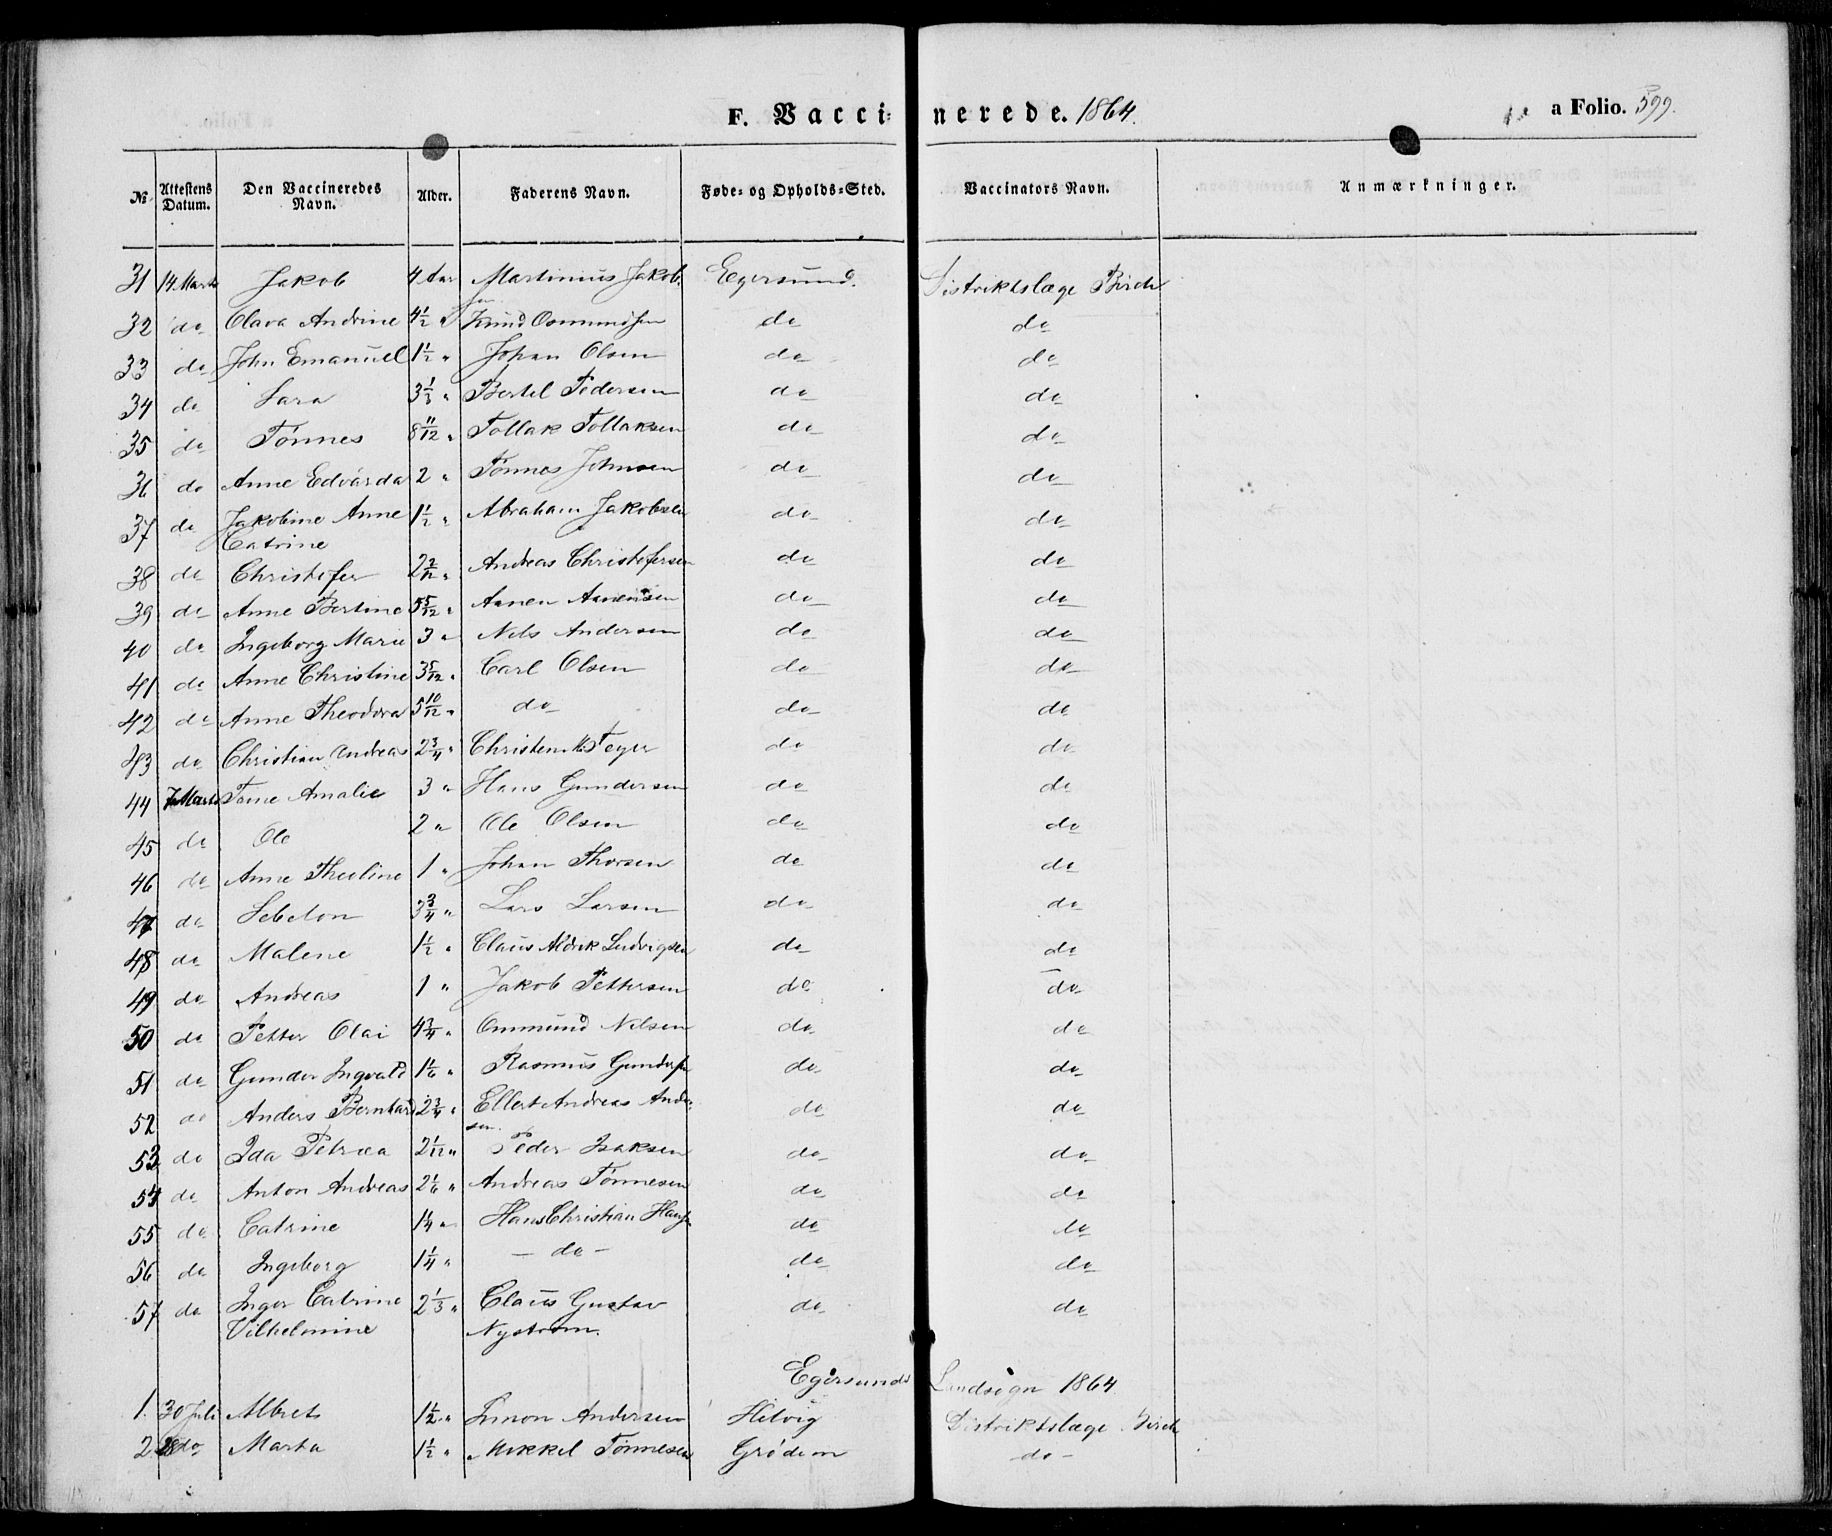 F. Vaccinerede. 1864. a Folio. 399.
No. Attestens Datum. Den Vaccineredes Navn. Alder. Faderens Navn. Føde- og Opholds-Sted. Vaccinators Navn. Anmærkninger.
31 14 Marts Jakob 4 Aar Martinius Jakob- Egersund. Distriktslæge Birch
sen
32 do Olava Andrine 4 1/2 " Knud Osmundsen do do
33 do John Emanuel 1 1/2 " Johan Olsen do do
34 do Sara 3 1/3 " Bertel Pedersen do do
35 do Tønnes 8 11/12 " Tollak Tollaksen do do
36 do Anne Edvarda 2 " Tønnes Johnsen do do
37 do Jakobine Anne 1 1/2 " Abraham Jakobsen do do
Catrine
38 do Christofer 2 2/12 " Andreas Christofersen do do
39 do Anne Bertine 5 5/12 " Aanen Aanensen do do
40 do Ingeborg Marie 3 " Nels Andersen do do
41 do Anne Christine 3 5/12 " Carl Olsen do do
42 do Anne Theodora 5 10/12 " do do do
43 do Christian Andreas 2 3/4 " Christen M. Feyer do do
44 7 Marts Tone Amalie 3 " Hans Gundersen do do
45 do Ole 2 " Ole Olsen do do
46 do Anne Theoline 1 " Johan Thorsen do do
47 do Sebelon 3 3/4 " Lars Larsen do do
48 do Malene 1 1/2 " Claus Aldrik Ludvigsen do do
49 do Andreas 1 " Jakob Pettersen do do
50 do Petter Olai 4 3/4 " Ommund Nilsen do do
51 do Gunder Ingvald 1 1/6 " Rasmus Gundersen do do
52 do Anders Berntard 2 3/4 " Ellert Andreas Ander- do do
sen.
53 do Ida Petrea 2 1/12 " Peder Isaksen do do
54 do Anton Andreas 2 1/6 " Andreas Tønnesen do do
55 do Catrine 1 1/4 " Hans Christian Hansen do do
56 do Ingeborg 1 1/4 " - do - do do
57 do Inger Catrine 2 1/3 " Claus Gustav do do
Vilhelmine Nystrøm.
Egersunds Landsogn 1864
1. 30 Juli Albret 1 1/2 " Simon Andersen Helvig Distriktslæge Birch
2 28 do Marta 1 1/2 " Mikkel Tønnesen Grødem do -